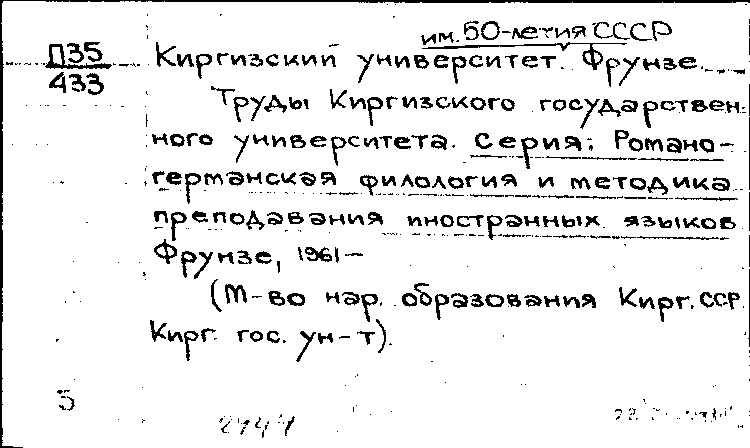 им. 50-летия СССР
П35 Киргизский университет. Фрунзе.
433
Труды Киргизского государствен-
ного университета. Серия: Романо-
германская филология и методика
преподавания иностранных языков
Фрунзе, 1961-
(М-во нар. образования Кирг. ССР.
Кирг. гос. ун-т).
5